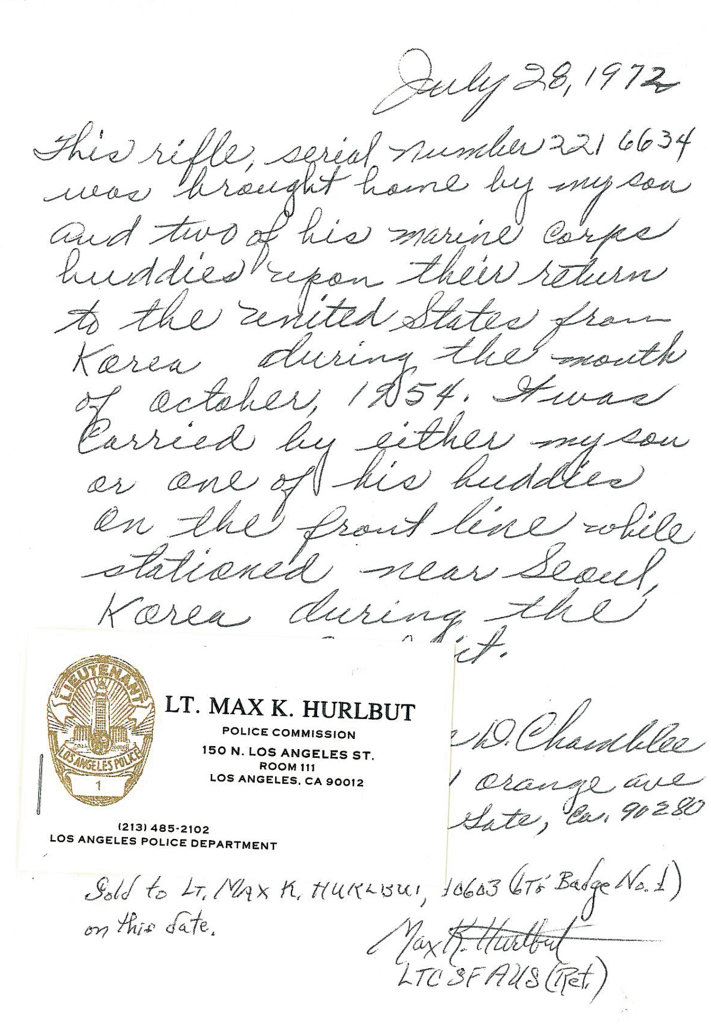 July 28, 1972
This rifle, serial number 2216634
was brought home by my son
and two of his marine corps
buddies upon their return
to the united States from
Korea during the month
of october, 1954. It was
Carried by either my son
or one of his buddies
on the front line while
stationed near Seoul,
Korea during the
D. Chamblee
orange ave
Gate, Ca. 90280
LIEUTENANT
LOS ANGELES POLICE
1
LT. MAX K. HURLBUT
POLICE COMMISSION
150 N. LOS ANGELES ST.
ROOM 111
LOS ANGELES, CA 90012
(213) 485-2102
LOS ANGELES POLICE DEPARTMENT
Sold to LT. MAX K. HURLBUT, 10603 (LT's Badge No. 1)
on this date.
Max K. Hurlbut
LTC SF AUS (Ret.)